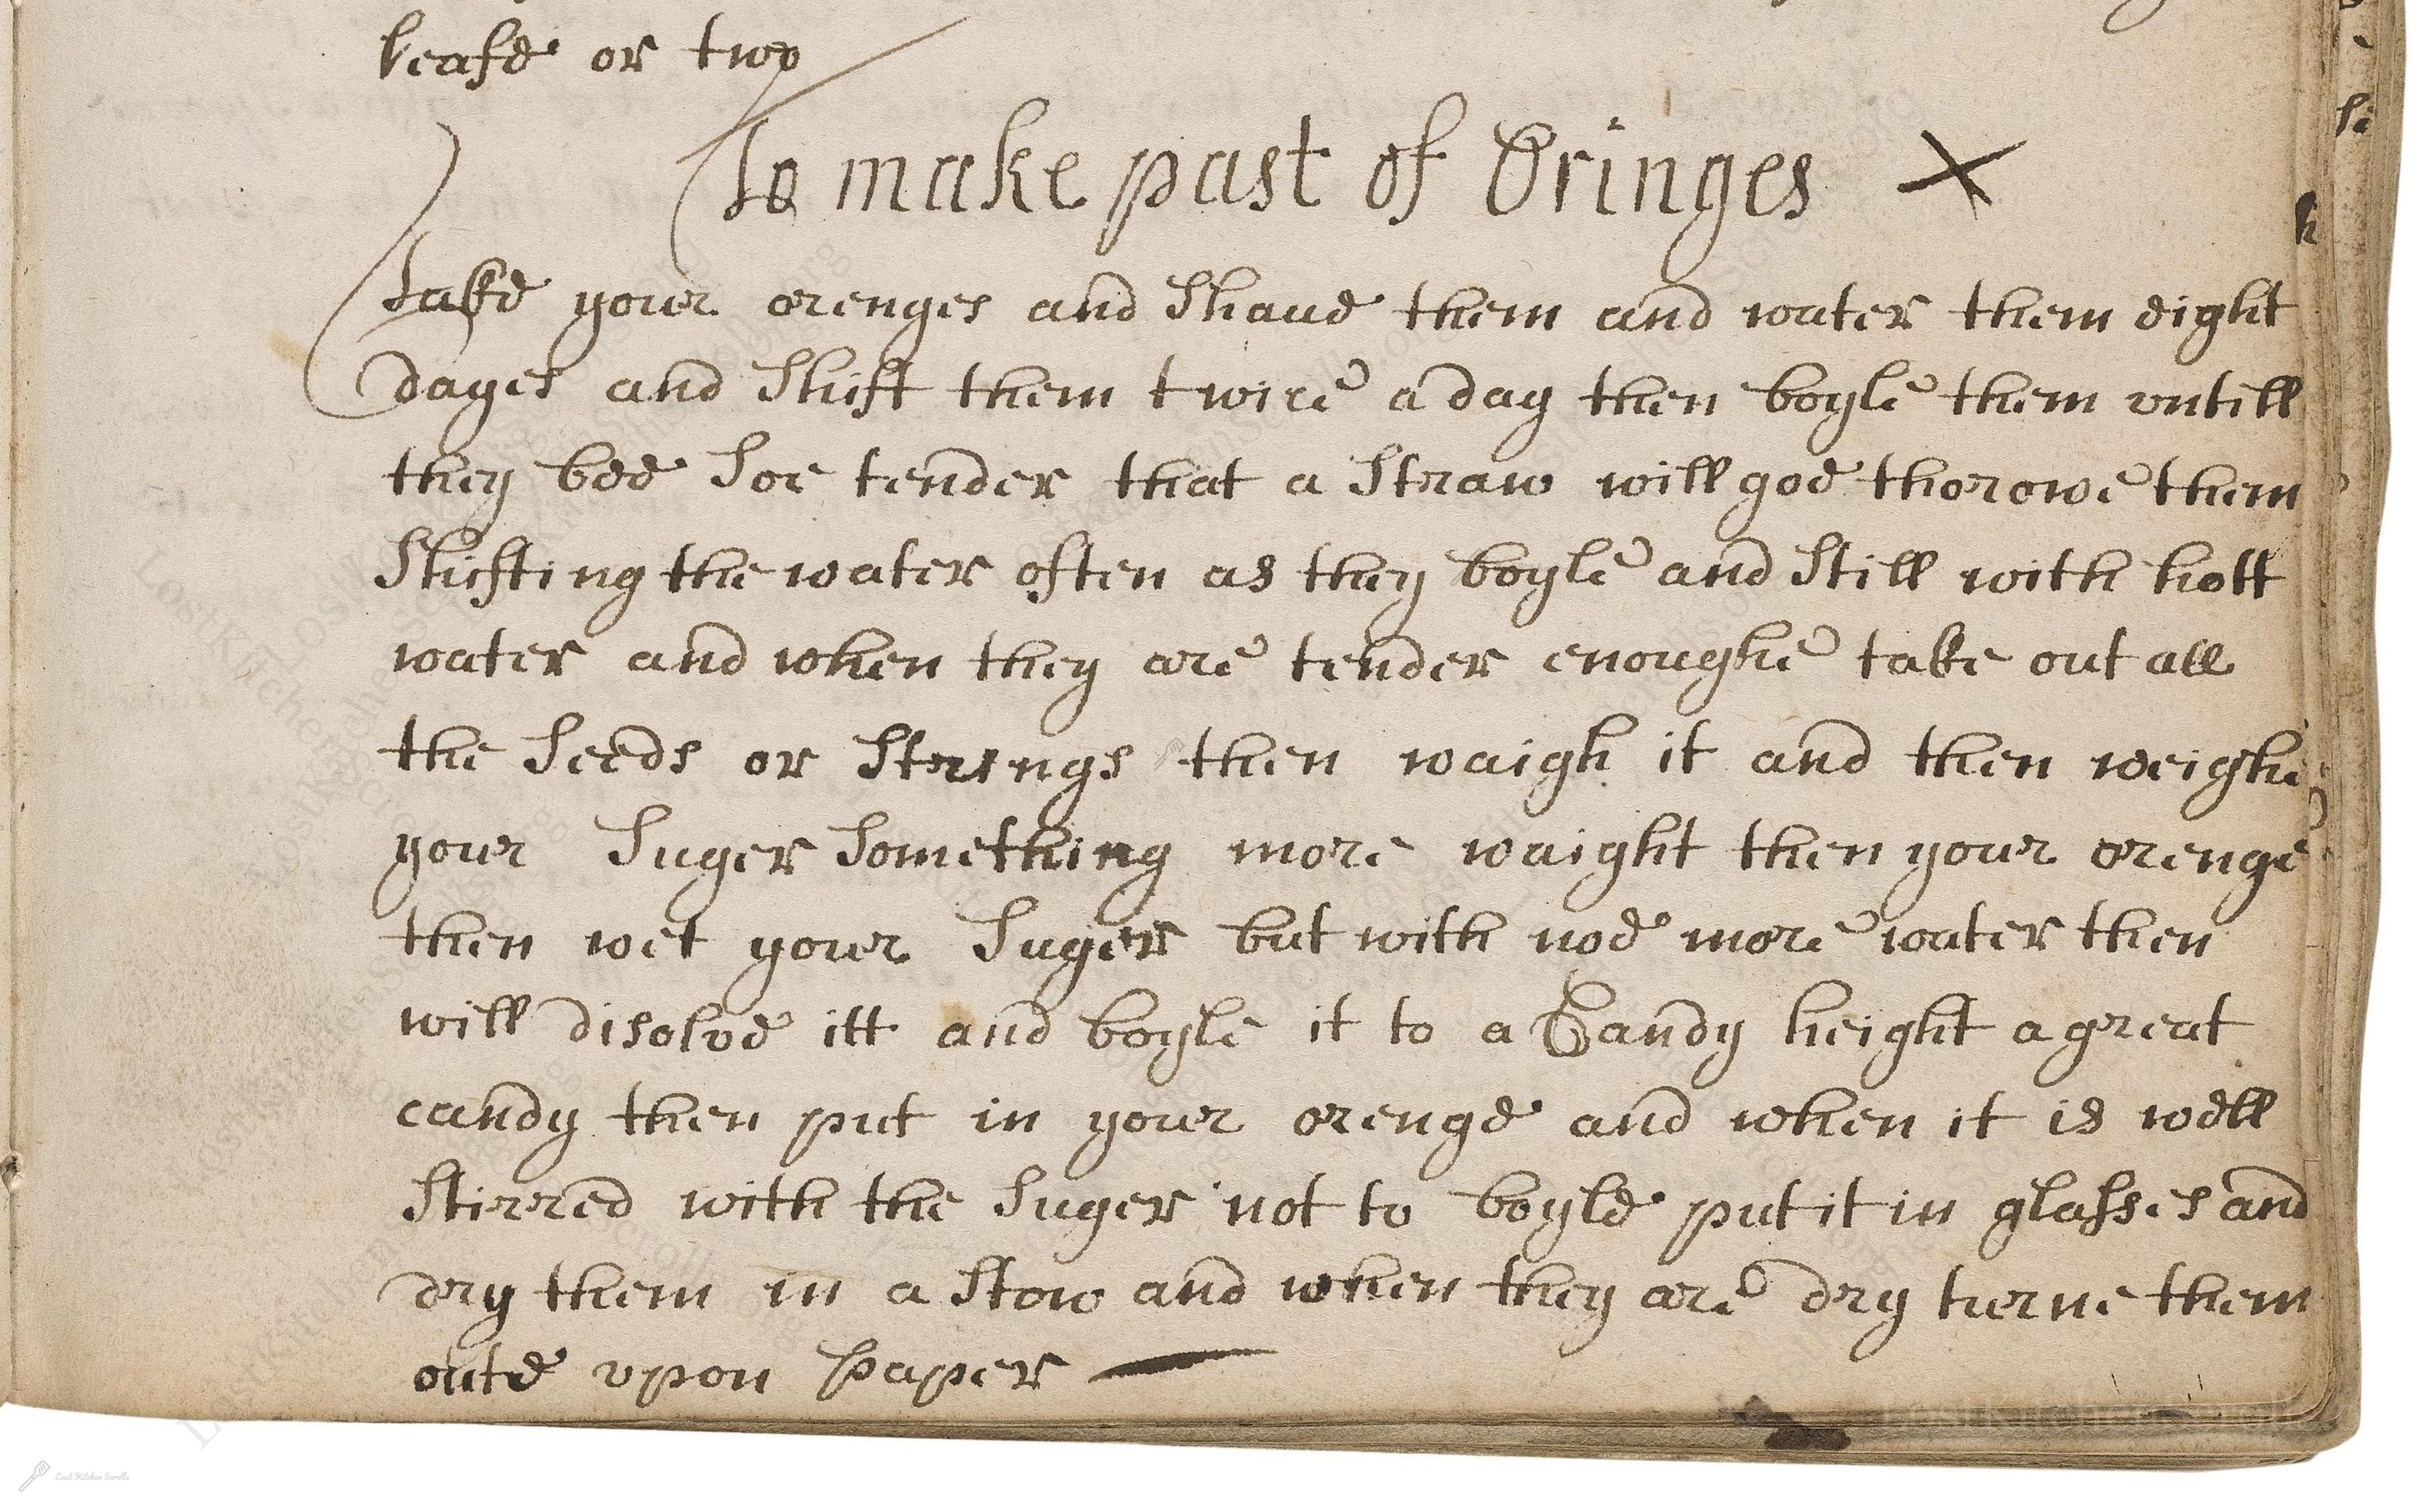 leafe or two
To make past of Oringes
Take your orenges and Shave them and water them eight
dayes and Shift them twice a day then boyle them vntill
they bee Soe tender that a Straw will goe thorowe them
Shifting the water often as they boyle and Still with hott
water and when they are tender enoughe take out all
the Seeds or Strings then waigh it and then weighe
your Suger Something more waight then your orenge
then wet your Suger but with noe more water then
will disolve itt and boyle it to a Candy height a great
candy then put in your orenge and when it is well
Stirred with the Suger not to boyle put it in glasses and
dry them in a Stow and when they are dry turne them
oute vpon paper
Lost Kitchen Scrolls